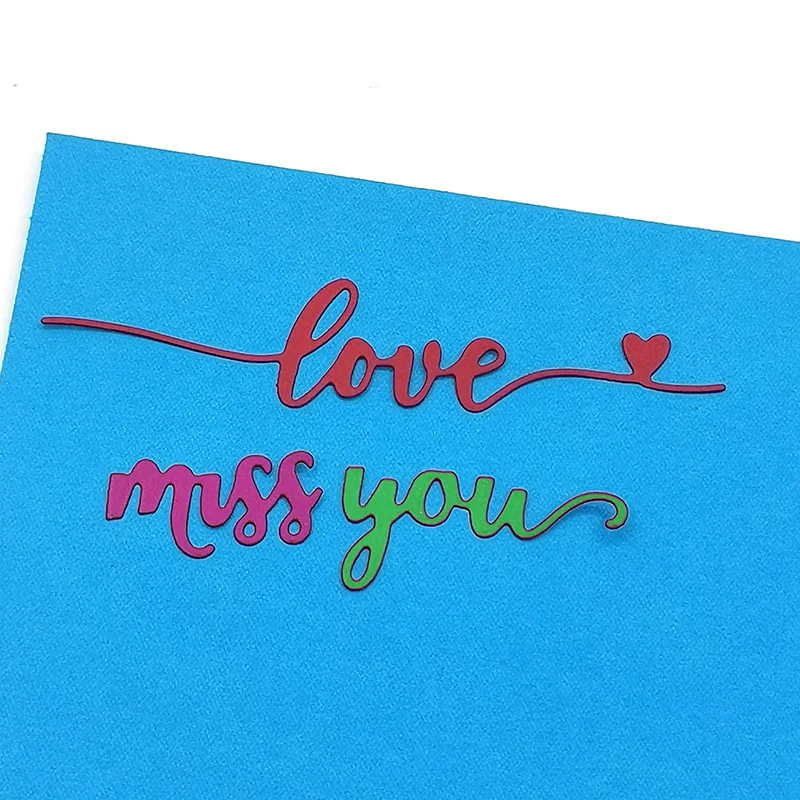 love
miss you